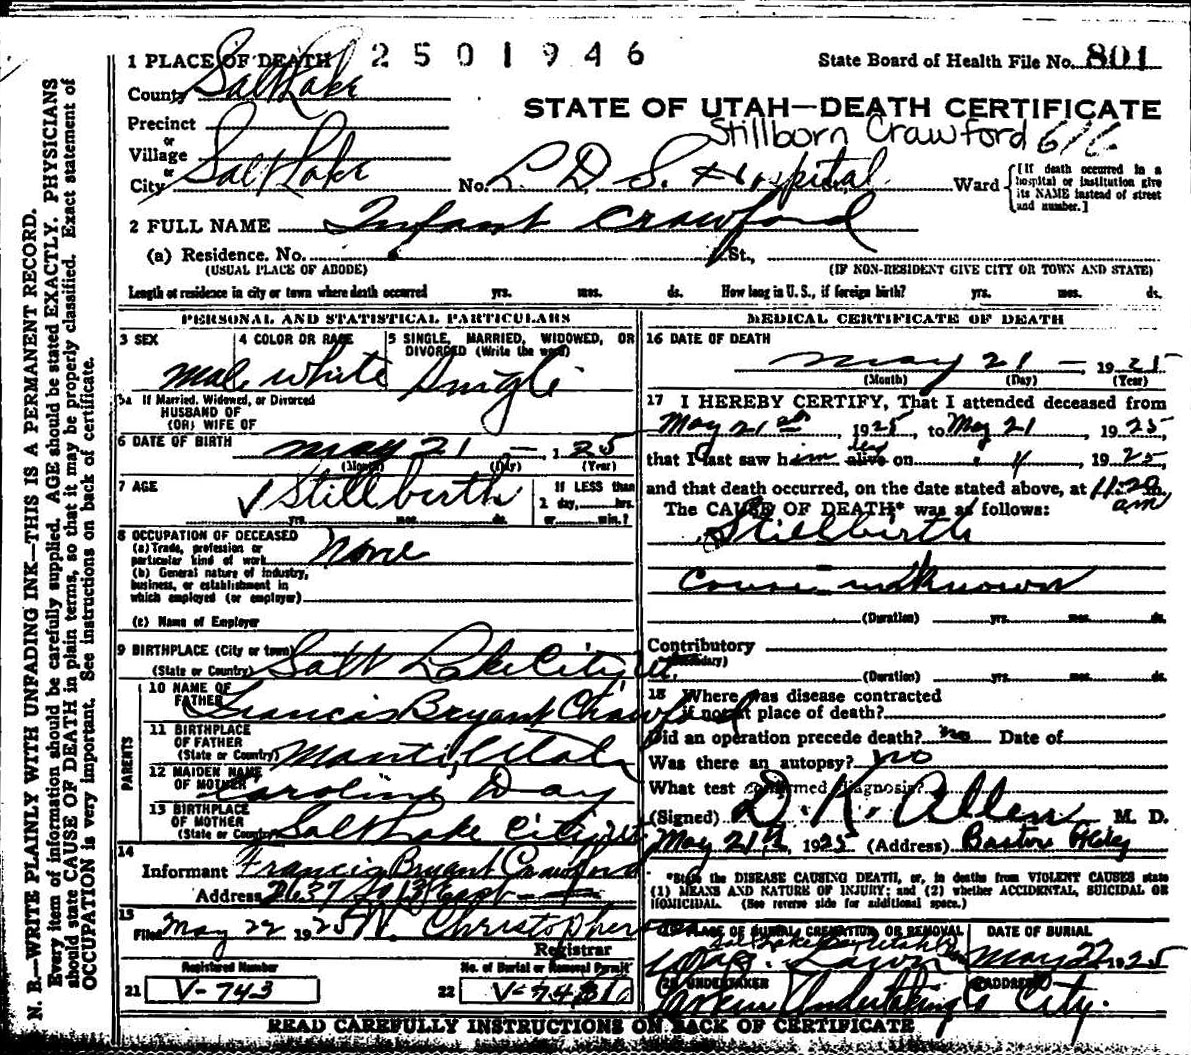 1 PLACE OF DEATH 2501946 State Board of Health File No. 801
County Salt Lake
STATE OF UTAH—DEATH CERTIFICATE
Precinct
or
Village
Stillborn Crawford
or
City Salt Lake No. L. D. S. Hospital Ward
[If death occurred in a hospital or institution give its NAME instead of street and number.]
2 FULL NAME Infant Crawford
(a) Residence. No. St.,
(USUAL PLACE OF ABODE) (IF NON-RESIDENT GIVE CITY OR TOWN AND STATE)
Length of residence in city or town where death occurred yrs. mos. ds. How long in U. S., if foreign birth? yrs. mos. ds.
PERSONAL AND STATISTICAL PARTICULARS
3 SEX 4 COLOR OR RACE 5 SINGLE, MARRIED, WIDOWED, OR
DIVORCED (Write the word)
Male White Single
5a If Married, Widowed, or Divorced
HUSBAND OF
(OR) WIFE OF
6 DATE OF BIRTH May 21 — 1 25
(Month) (Day) (Year)
7 AGE Stillbirth If LESS than
1 day, hrs.
yrs. mos. ds. or min.?
8 OCCUPATION OF DECEASED
(a) Trade, profession or
particular kind of work None
(b) General nature of industry,
business, or establishment in
which employed (or employer)
(c) Name of Employer
9 BIRTHPLACE (City or town)
(State or Country) Salt Lake City, Ut.
PARENTS
10 NAME OF
FATHER Francis Bryant Crawford
11 BIRTHPLACE
OF FATHER
(State or Country) Manti, Utah
12 MAIDEN NAME
OF MOTHER Caroline Day
13 BIRTHPLACE
OF MOTHER
(State or Country) Salt Lake City, Ut
14
Informant Francis Bryant Crawford
Address 2637 So 13 East
15
Filed May 22 1925 N. Christopherson
Registrar
Registered Number No. of Burial or Removal Permit
21 V-743 22
MEDICAL CERTIFICATE OF DEATH
16 DATE OF DEATH
May 21 — 1925
(Month) (Day) (Year)
17 I HEREBY CERTIFY, That I attended deceased from
May 21st, 1925, to May 21, 1925,
that I last saw him alive on " ", 1925,
and that death occurred, on the date stated above, at 11:20 am
The CAUSE OF DEATH* was as follows:
Stillbirth
Cause unknown
(Duration) yrs. mos. ds.
Contributory
(Secondary)
(Duration) yrs. mos. ds.
18 Where was disease contracted
if not at place of death?
Did an operation precede death? no Date of
Was there an autopsy? no
What test confirmed diagnosis?
(Signed) D. K. Allen M. D.
May 21st, 1925 (Address) Boston Bldg
*State the DISEASE CAUSING DEATH, or, in deaths from VIOLENT CAUSES state
(1) MEANS AND NATURE OF INJURY; and (2) whether ACCIDENTAL, SUICIDAL OR
HOMICIDAL. (See reverse side for additional space.)
19 PLACE OF BURIAL, CREMATION OR REMOVAL DATE OF BURIAL
Lawn May 22 1925
20 UNDERTAKER ADDRESS
Larkin Undertaking City.
READ CAREFULLY INSTRUCTIONS ON BACK OF CERTIFICATE
N. B.—WRITE PLAINLY WITH UNFADING INK—THIS IS A PERMANENT RECORD.
Every item of information should be carefully supplied. AGE should be stated EXACTLY. PHYSICIANS
should state CAUSE OF DEATH in plain terms, so that it may be properly classified. Exact statement of
OCCUPATION is very important. See instructions on back of certificate.